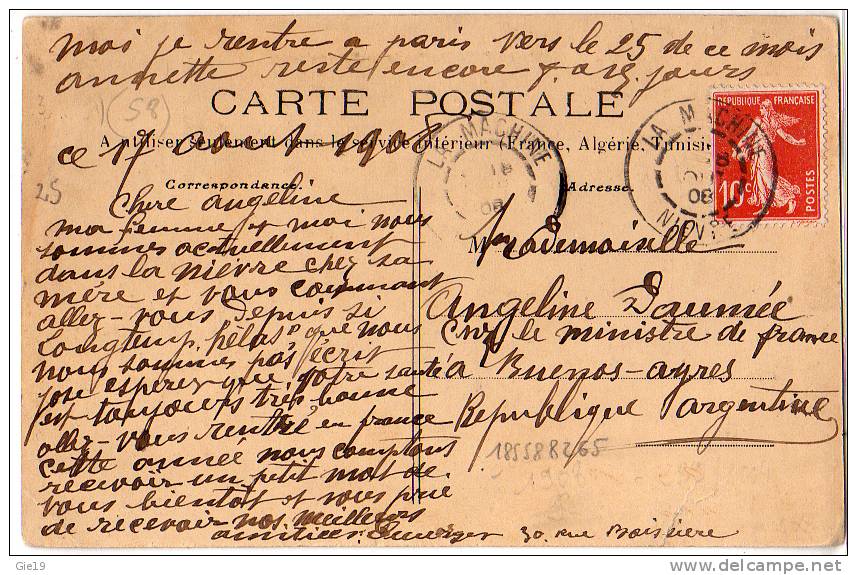 moi je rentre a paris vers le 25 de ce mois
annette reste encore jours
58
CARTE POSTALE
A utiliser seulement dans le service intérieur (France, Algérie, Tunisie
ce 17 aout 1908
LA MACHINE
18
08
LA MACHINE
NIEVRE
18
08
REPUBLIQUE FRANÇAISE
10c
POSTES
25
Correspondance.
Adresse.
Chere angeline
ma femme et moi nous
sommes actuellement
dans la nièvre chez sa
mère et vous comment
allez-vous depuis si
longtemps hélas que nous
nous sommes pas écrit
jose esperez que votre santé
est toujours très bonne
allez-vous rentré en france
cette année nous comptons
recevoir un petit mot de
vous bientot et vous prie
de recevoir nos meilleurs
amitiés
30. rue Boissiere
Mademoiselle
Angeline Daumée
chez le ministre de france
à Buenos-ayres
Republique Argentine
185588265
Gie19
www.delcampe.net